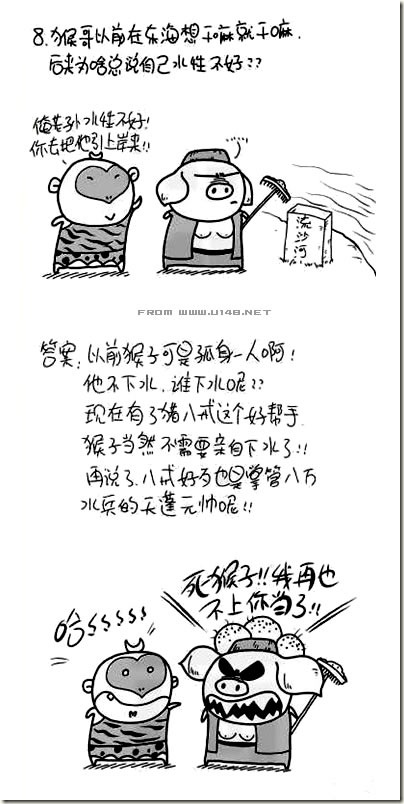 8.猴哥以前在东海想干嘛就干嘛.
后来为啥总说自己水性不好??
俺老孙水性不好!
你去把他引上岸来!!
流沙河
FROM WWW.U148.NET
答案:以前猴子可是孤身一人啊!
他不下水,谁下水呢??
现在有了猪八戒这个好帮手.
猴子当然不需要亲自下水了!!
再说了.八戒好歹也是掌管八万
水兵的天蓬元帅呢!!
死猴子!!我再也
不上你当了!!
哈SSSSS